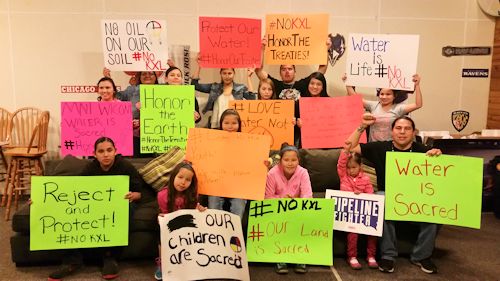 NO OIL
ON OUR
SOIL #NO
KXL
Protect Our
Water!
#HonorOurFuture
#NOKXL
HONOR THE
TREATIES!
Water is
Life #NO
KXL
CHICAGO
RAVENS
WATER is
SACRED
Honor
the
Earth
#NOKXL
#LOVE
NOT
Reject
and
Protect!
#NOKXL
OUR
Children
are Sacred
#NOKXL
#OUR Land
is Sacred
PIPELINE
FIGHTER
Water
is
Sacred